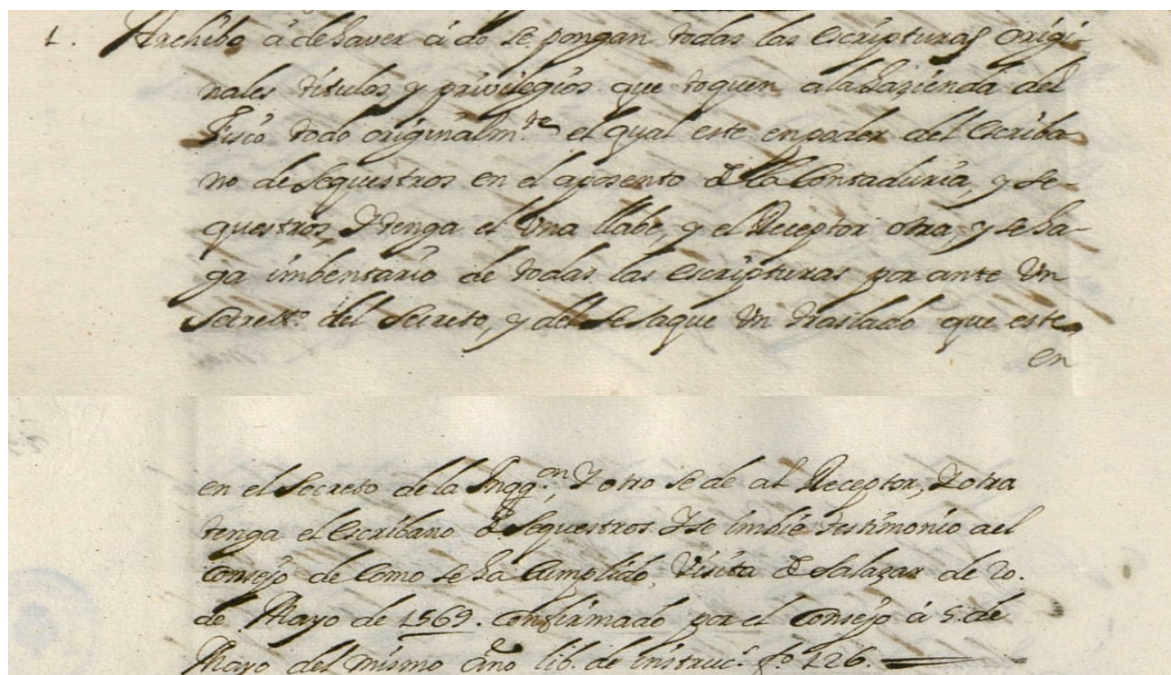 1. Archibo à de haver à do se pongan todas las escripturas origi-
nales titulos y privilegios que toquen a la hazienda del
Fisco todo originalm.te el qual este en poder del escriba-
no de sequestros en el aposento de la Contaduria, y se-
questros, Y tenga el Vna llabe, y el Receptor otra, y se ha-
ga imbentario de todas las escripturas por ante Vn
Secret.o del Secreto, y del se saque Vn traslado que este
en
en el Secreto de la Inqq.on, Y otro se de al Receptor, Y otra
tenga el escribano de Sequestros Y se imbie testimonio ael
Consejo de como se ha Cumplido, Visita de Salazar de 20.
de Mayo de 1569. Confirmado por el Consejo à 5. de
Mayo del mismo año lib. de instruc.s fo. 126.